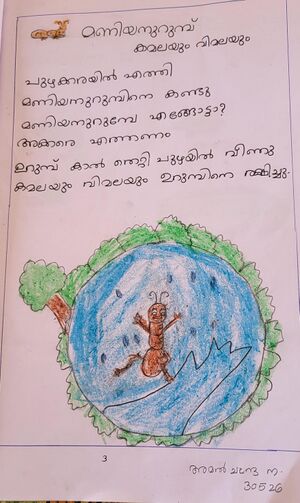 മണിയനുറുമ്പ്
കമലയും വിമലയും
പുഴക്കരയിൽ എത്തി
മണിയനുറുമ്പിനെ കണ്ടു
മണിയനുറുമ്പേ എങ്ങോട്ടാ?
അക്കരെ എത്തണം
ഉറുമ്പ് കാൽ തെറ്റി പുഴയിൽ വീണു
കമലയും വിമലയും ഉറുമ്പിനെ രക്ഷിച്ചു.
3
30526